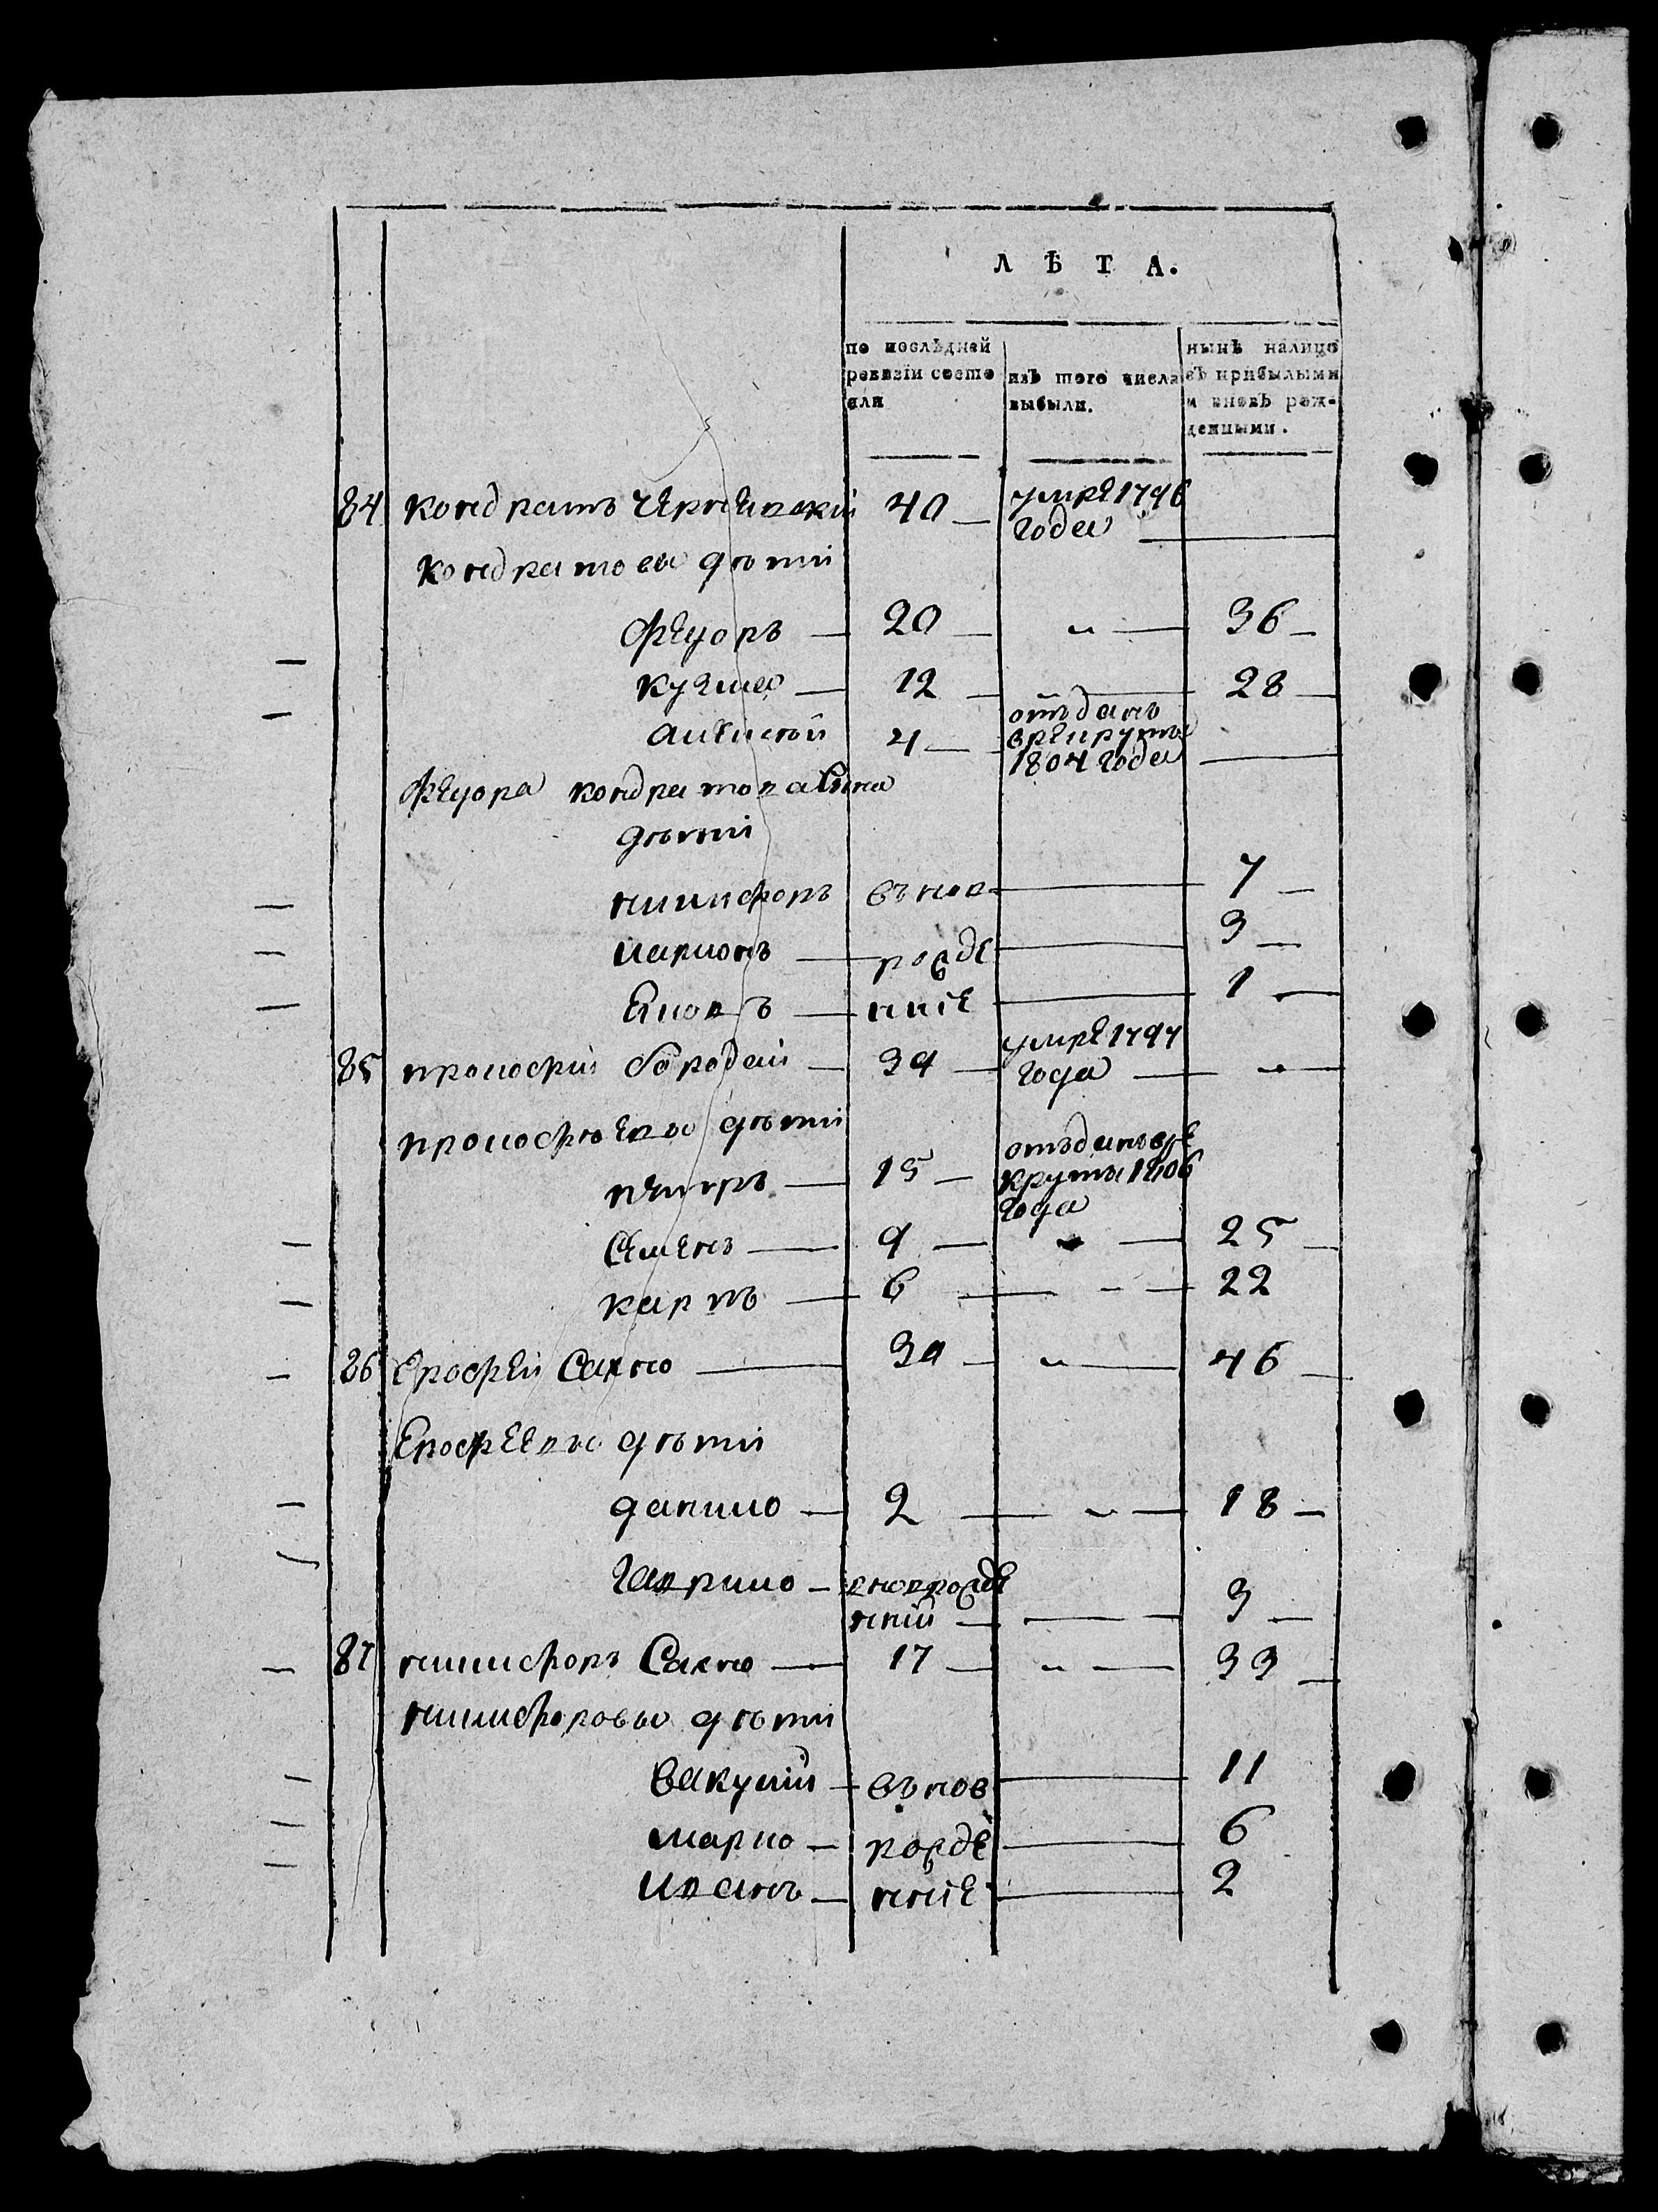 Л Ѣ Т А.
по послѣдней ревизіи состо яли
изъ того числа выбыли.
нынѣ налицо съ прибылыми и вновь рож- денными.
84 Кондратъ 40 умре 1796 года
Кондратовы дѣти
Федоръ 20 „ 36
Кузма 12 „ 28
Алексѣй 4 отъданъ врекруты 1804 года
Федора Кондратова сына
дѣти
Никифоръ вънов 7
Иарионъ рожде 3
ные 1
85 Прокофий Бородай 34 умре 1797 года „
Прокофьевы дѣти
Петръ 15 отъданъ вре круты 1806 года
Семенъ 9 „ 25
Карпъ 6 „ 22
86 Ерофей Сахно 30 „ 46
Ерофеевы дѣти
Данило 2 „ 18
Гаврило вноврожде ний 3
87 Никифоръ Сахно 17 „ 33
Никифоровы дѣти
Вакулий вънов 11
Марко рожде 6
Иванъ нние 2